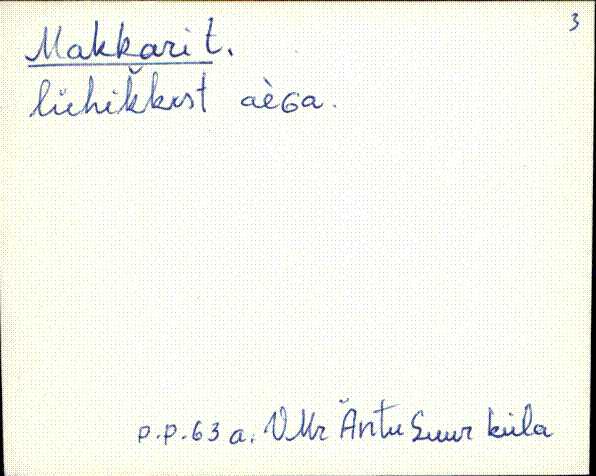 3
Makkarit.
lühikkest aèGa.
P.P. 63 a. VMr Äntu Suur küla